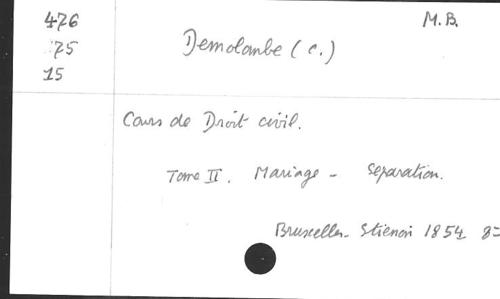 476
75
15
M.B.
Demolombe (C.)
Cours de Droit civil.
Tome II. Mariage - Separation.
Bruxelles. Stienon 1854 8=